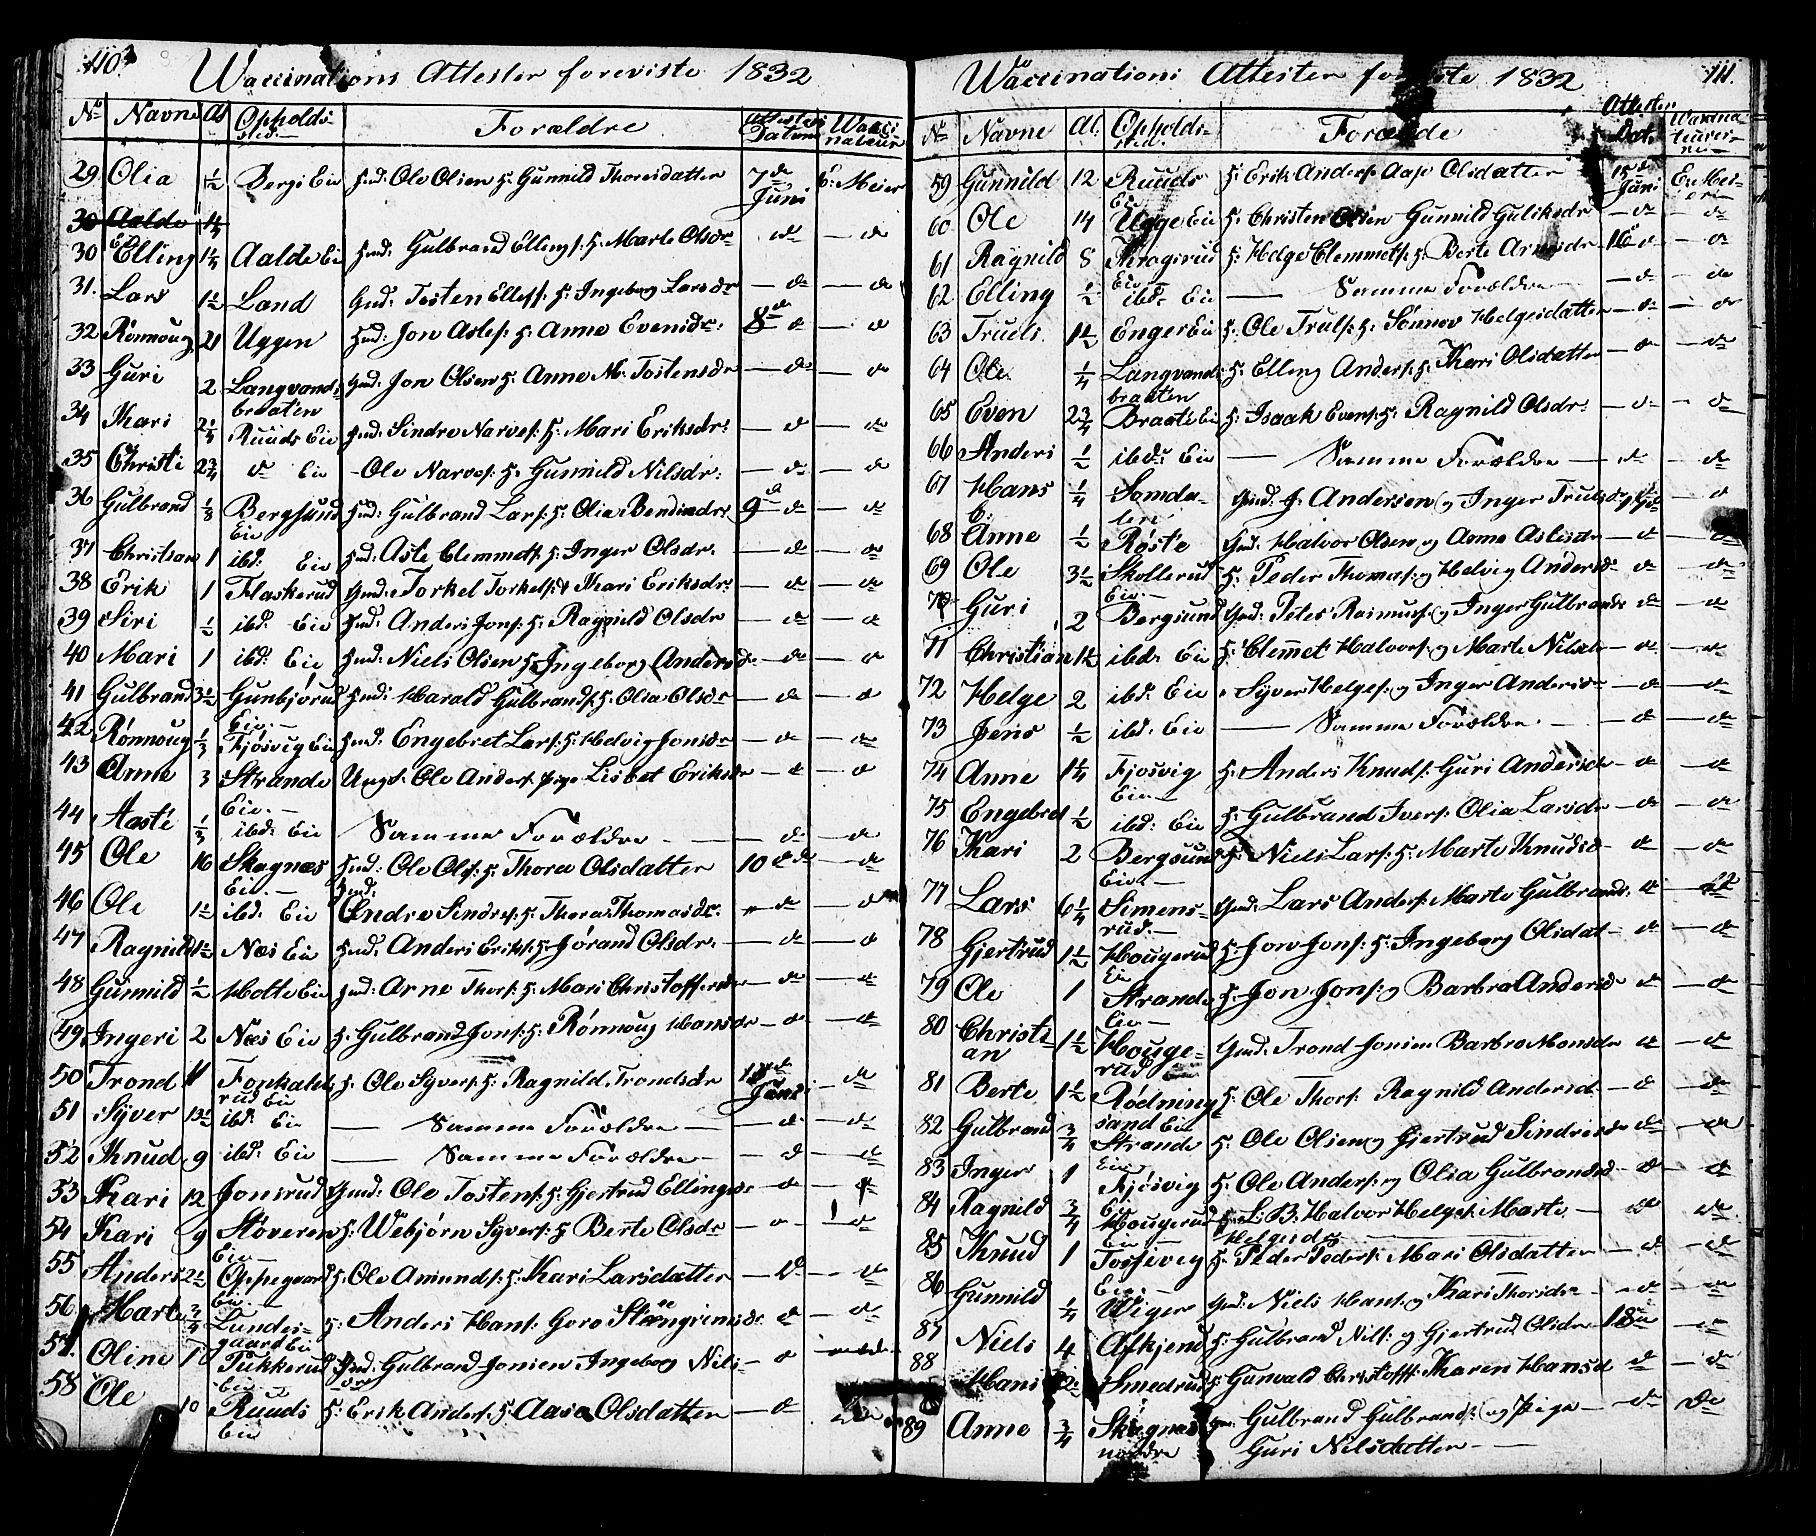 110.
Waccinations Attester foreviste 1832
No Navne Al Opholds- sted.- Forældre Attestens Datum Wacci- nateur
29 Olia 1/2 Bergs Eie Hmd: Ole Olsen H: Gunnild Thoresdatter 7de Juni E: Meier
30 Aalde 1/4
30 Elling 1 1/4 Aalde Eie Hmd: Gulbrand Ellings: H: Marte Olsdr - d - d
31. Lars 1 1/2 Land Gmd: Tosten Ellefs: H: Ingeborg Larsdr - d - d
32 Rönnoug 21 Uggen Hmd: Jon Aslef: H: Anne Evensdr: 8de d - d
33 Guri 2 Langvands- Gmd: Jon Olsen H: Anne M: Tostensdr - d - d
braaten
34 Kari 2 1/4 Ruuds Eie Hmd: Sindre Narves: H: Mari Eriksdr: - d - d
35 Christi 2 3/4 d Eie - Ole Narves: H: Gunnild Nilsdr: - d - d
36 Gulbrand 1/8 Bergsund Hmd: Gulbrand Lars: H: Olia Bendixdr: 9de d - d
Eie
37 Christian 1 ibd: Eie Hmd: Asle Clemmets: H: Inger Olsdr. - d - d
38 Erik 1 Flaskerud Gmd: Torkel Torkels: H: Kari Eriksdr: - d - d
39 Siri 1/2 ibd: Eie Hmd: Anders Jons: H: Ragnild Olsdr - d - d
40 Mari 1 ibd: Eie Hmd: Niels Olsen H: Ingeborg Andersdr - d - d
41 Gulbrand 3 1/2 Gunbjörud Hmd: Harald Gulbrands: H: Olia Olsdr - d - d
Eie.-
42 Rönnoug 1/3 Fjösvig Eie Hmd: Engebret Lars: H: Helvig Jonsdr - d - d
43 Anne 3 Strande Ungk: Ole Anders: pige Lisbet Eriksdr - d - d
Eie.-
44 Aaste 1/3 ibd: Eie Samme Forældre - - d - d
45 Ole 16 Skagnæs Hmd: Ole Ols: H: Thora Olsdatter 10 de d - d
Eie.- Hmd:
46 Ole 1 1/2 ibd: Eie Endre Sindres: H: Thora Thomasdr. - d - d
47 Ragnild 1 1/2 Næs Eie Hmd: Anders Eriks: H: Jörand Olsdr. - d - d
48 Gunnild 1/2 Holte Eie Hmd: Arne Thors: H: Mari Christoffersdr - d - d
49 Ingeri 2 Næs Eie H: Gulbrand Jons: H: Rönnoug Hansdr - d - d
50 Trond 11 H: Ole Syvers: H: Ragnild Trondsdr Juni - d
rud Eie
51 Syver 13 1/2 ibd: Eie - Samme Forældre - - d - d
52 Knud 9 ibd: Eie - Samme Forældre - - d - d
53 Kari 12 Jonsrud Gmd: Ole Tostens: H: Gjertrud Ellingsdr - d - d
54 Kari 9 Stöveren H: Webjörn Syvers: H: Berte Olsdr - d - d
Eie -
55 Anders 2 1/2 Oppegaard H: Ole Amunds: H: Kari Larsdatter - d - d
Eie.-
56 Marte 3/4 Lunder- H: Anders Hans: Goro Steengrimsdr - d - d
gaard Eie
57. Oline Tukkerud Hmd: Gulbrand Jonsen Ingeborg Nils- - d - d
Eie
58 Ole 10 Ruuds H: Erik Anders: H: Aase Olsdatter - d - d
Eie
111.
Waccinations Attester foreviste 1832
No Navne Al. Opholds- sted. Forældre Attesten Dat. Waccina teurer-
59 Gunnild 12 Ruuds H: Erik Anders: Aase Olsdatter 15de Juni E: Mei- er
Eie
60 Ole 14 Ugge Eie H: Christen Olsen Gunnild Guliksdr - d - d
61 Ragnild 8 H: Helge Clemmets: H: Berte Arnesdr 16 d - d
Eie
62 Elling 1/2 ibd: Eie - Samme Forældre - d - d
63 Truels. 1 1/2 Enger Eie H: Ole Truls: H: Sönnev Helgesdatter - d - d
64 Ole 1/4 Langvands H: Elling Anders: H: Kari Olsdatter - d - d
braaten
65 Even 2 3/4 Braate Eie H: Isaak Evens: H: Ragnild Olsdr - d - d
66 Anders 1/2 ibd: Eie - Samme Forældre - d - d
67 Hans 1/4 Somda- Gmd: J: Andersen og Inger Truls - d
len
68 Anne 1/2 Röste Gmd: Halvor Olsen og Anne Aslesdr - d - d
69 Ole 3 1/2 Skollerud H: Peder Thomas: og Helvig Andersdr d - d
Eie.-
70 Guri 2 Bergsund Gmd: Peter Rasmus: og Inger Gulbrandsdr d - d
71 Christian 1 1/2 ibd: Eie H: Clemmet Halvors: og Marte Nilsdr - d - d
72 Helge 2 ibd: Eie Syver Helges: og Inger Andersdr - d - d
73 Jens 1/2 ibd: Eie - Samme Forældre. - - d - d
74 Anne 1 1/4 Fjosvig H: Anders Knuds: Guri Andersdr - d - d
Eie.-
75 Engebret 1/2 ibd: Eie H: Gulbrand Ivers: Olia Larsdr - d - d
76 Kari 2 Bergsund H: Niels Lars: H: Marte Knudsd - d - d
Eie.-
77 Lars 6 1/4 Simens- Gmd: Lars Anders: Marte Gulbrandsdr. d - d
rud.-
78 Gjertrud 1 1/2 Hougerud H: Jon Jons: H: Ingeborg Olsdat - d - d
Eie
79 Ole 1 Strande H: Jon Jons: og Barbra Andersdr d - d
Eie.-
80 Christi- 1 1/2 Houge- Gmd: Trond Jonsen Barbra Monsdr d - d
an rud
81 Berte 1 1/2 Rödning H: Ole Thors: Ragnild Andersd - d - d
sand Eie
82 Gulbrand 3/4 Strande H: Ole Olsen og Gjertrud Sindresdr d - d
Eie
83 Inger 1 Fjösvig H: Ole Anders: og Olia Gulbrandsd - d - d
Eie
84 Ragnild 3/4 Hougerud H: L: B: Halvor Helges: Marte - d d
Eie - Helgesdr
85 Knud 1 H: Peder Peders: Mari Olsdatter - d - d
Eie.-
86 Gunnild 1/4 Wiger Gmd: Niels Hans: og Kari Thorsdr - d - d
87 Niels 4 Afkjend H: Gulbrand Nils: og Gjertrud Olsdr 18 - d
88 Hans 2 Smedrud H: Gunvald Christoff: Karen Hansd d - d
89 Anne 3/4 Skognæs Gulbrand Gulbrands: og Pige - d d
nordre Guri Nilsdatter - -